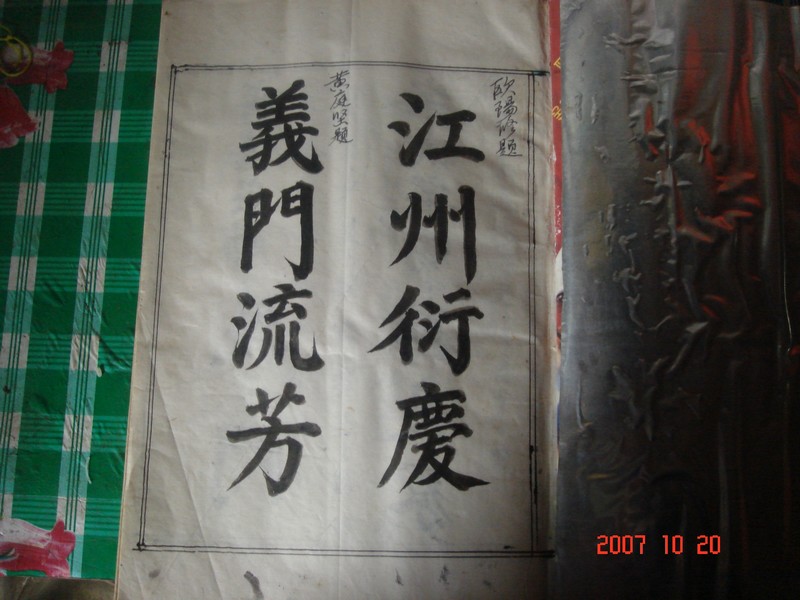 歐陽修題
江州衍慶
黄庭坚題
義門流芳
2007 10 20